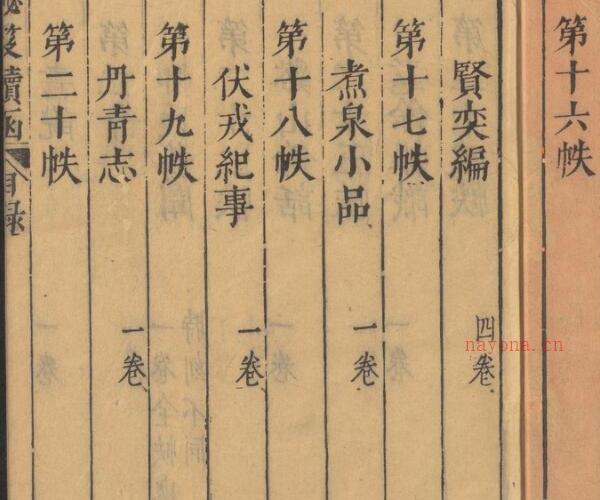 第十六帙
賢奕編 四卷
第十七帙
煮泉小品 一卷
第十八帙
伏戎紀事 一卷
第十九帙
丹青志 一卷
第二十帙
笈續函 目録
nayona.cn